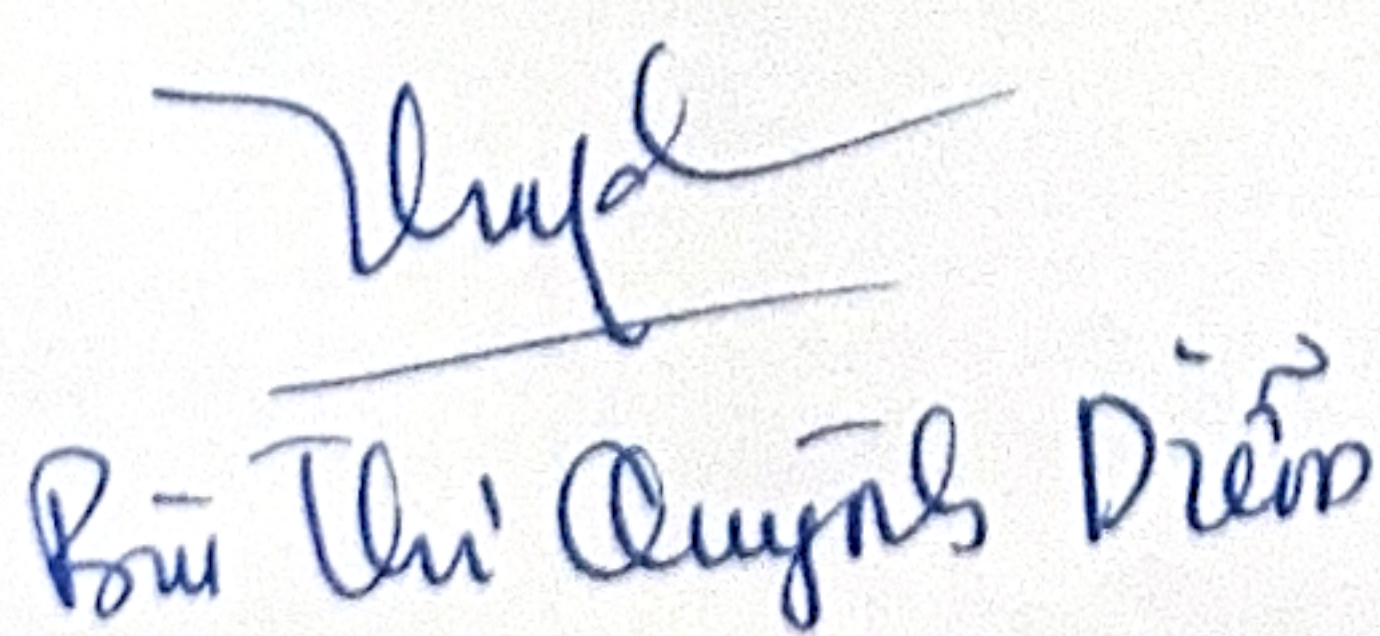 Bùi Thị Quỳnh Diễm